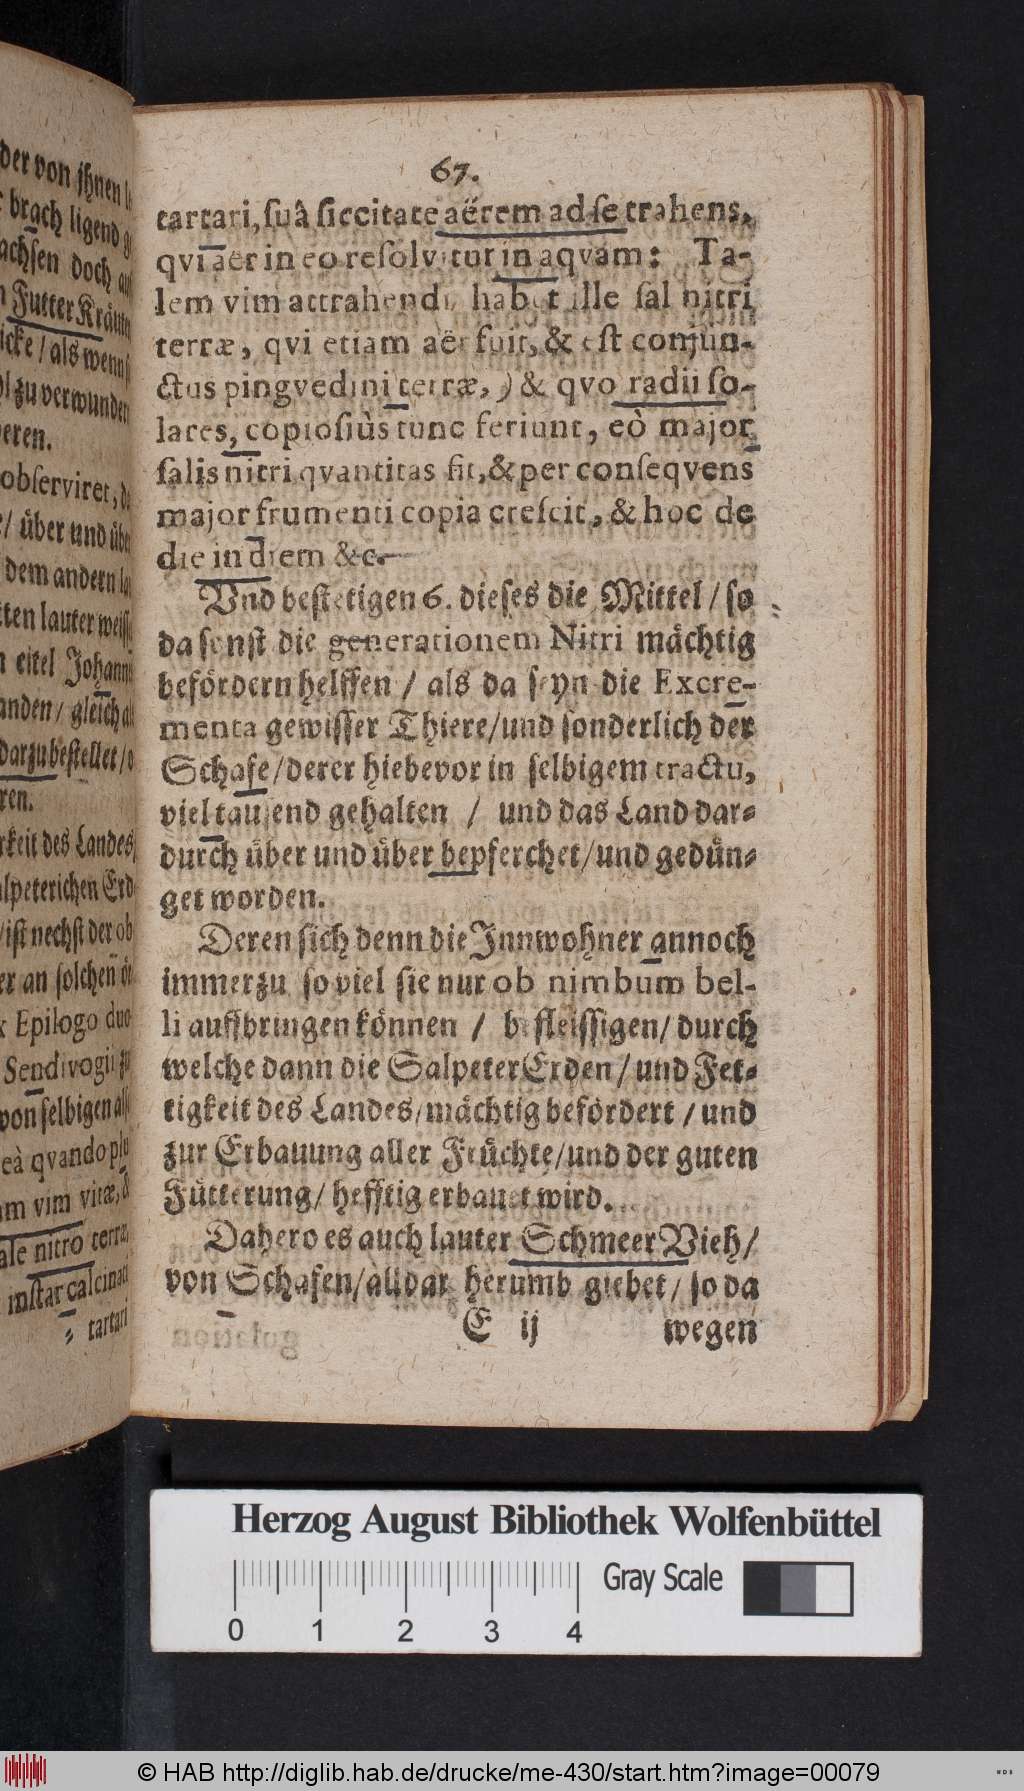 der von ihnen
brach ligend
achsen doch
Futter Kräuter
icke / als wenn
zu verwundern
eren.
observiret,
/ über und über
dem andern
ten lauter weiss
eitel Johann
anden / gleich
darzu bestellet /
ren.
rkeit des Landes
alpeterichen Erd
/ ist nechst der ob
er an solchen
Epilogo duo
Sendivogii
von selbigen
eà qvando
am vim vitæ,
ale nitro terræ
instar calcinati
tartari
67.
tartari, suâ siccitate aërem ad se trahens,
qvi aër in eo resolvitur in aqvam: Ta-
lem vim attrahendi habet ille sal nitri
terræ, qvi etiam aër fuit, & est conjun-
ctus pingvedini terræ,) & qvo radii so-
lares, copiosiùs tunc feriunt, eò major
salis nitri qvantitas fit, & per conseqvens
major frumenti copia crescit, & hoc de
die in diem &c.
Vnd bestetigen 6. dieses die Mittel / so
da sonst die generationem Nitri mächtig
befördern helffen / als da seyn die Excre-
menta gewisser Thiere / und sonderlich der
Schafe / derer hiebevor in selbigem tractu,
viel tausend gehalten / und das Land dar-
durch über und über bepferchet / und gedün-
get worden.
Deren sich denn die Innwohner annoch
immerzu so viel sie nur ob nimbum bel-
li auffbringen können / befleissigen / durch
welche dann die SalpeterErden / und Fet-
tigkeit des Landes / mächtig befördert / und
zur Erbauung aller Früchte / und der guten
Fütterung / hefftig erbauet wird.
Dahero es auch lauter Schmeer Vieh /
von Schafen / alldar herumb giebet / so da
E ij wegen
Herzog August Bibliothek Wolfenbüttel
Gray Scale
0 1 2 3 4
© HAB http://diglib.hab.de/drucke/me-430/start.htm?image=00079